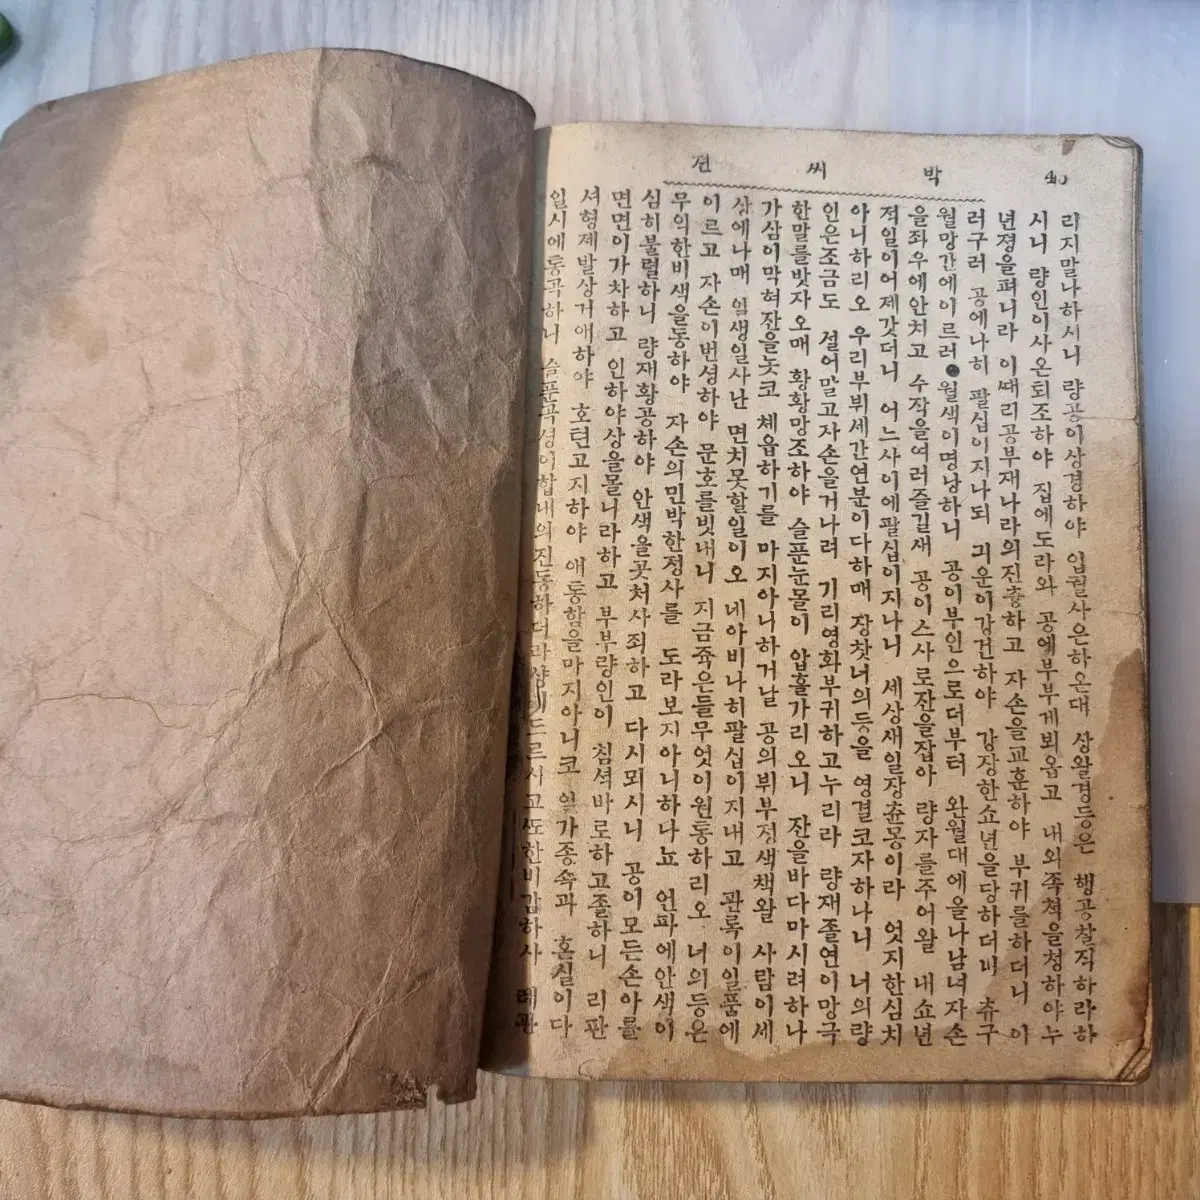 박씨젼
리지말나하시니 량공이상경하야 입궐사은하온대 상왈경등은 행공찰직하라하
시니 량인이사은퇴조하야 집에도라와 공에부부게뵈옵고 내외족쳑을쳥하야누
년졍을펴니라 이때리공부재나라의진츙하고 자손을교훈하야 부귀를하더니 이
러구러 공에나히 팔십이지나되 긔운이강건하야 강장한쇼년을당하더내 츄구
월망간에이르러●월색이명낭하니 공이부인으로더부터 완월대에올나남녀자손
을좌우에안치고 수작을여러즐길새 공이스사로잔을잡아 량자를주어왈 내쇼년
젹일이어졔갓더니 어느사이에팔십이지나니 세상새일장츈몽이라 엇지한심치
아니하리오 우리부뷔세간연분이다하매 장찻너의등을 영결코자하나니 너의량
인은조금도 셜어말고자손을거나려 기리영화부귀하고누리라 량재졸연이망극
한말를밧자오매 황황망조하야 슬푼눈물이 압흘가리오니 잔을바다마시려하나
가삼이막혀잔을놋코 쳬읍하기를 마지아니하거날 공의뷔부졍색책왈 사람이세
상에나매 일생일사난 면치못할일이오 네아비나히팔십이지내고 관록이일품에
이르고 자손이번셩하야 문호를빗내니 지금쥭은들무엇이원통하리오 너의등은
무익한비색을동하야 자손의민박한졍사를 도라보지아니하다뇨 언파에안색이
심히불렬하니 량재황공하야 안색을곳쳐사죄하고 다시뫼시니 공이모든손아를
면면이가차하고 인하야상을물니라하고 부부량인이 침셕바로하고졸하니 리판
셔형졔발상거애하야 호텬고지하야 애통함을마지아니코 일가종속과 혼실이다
일시에통곡하니 슬푼곡셩이합내의진동하더라샹이드르시고또한비감하사 례관